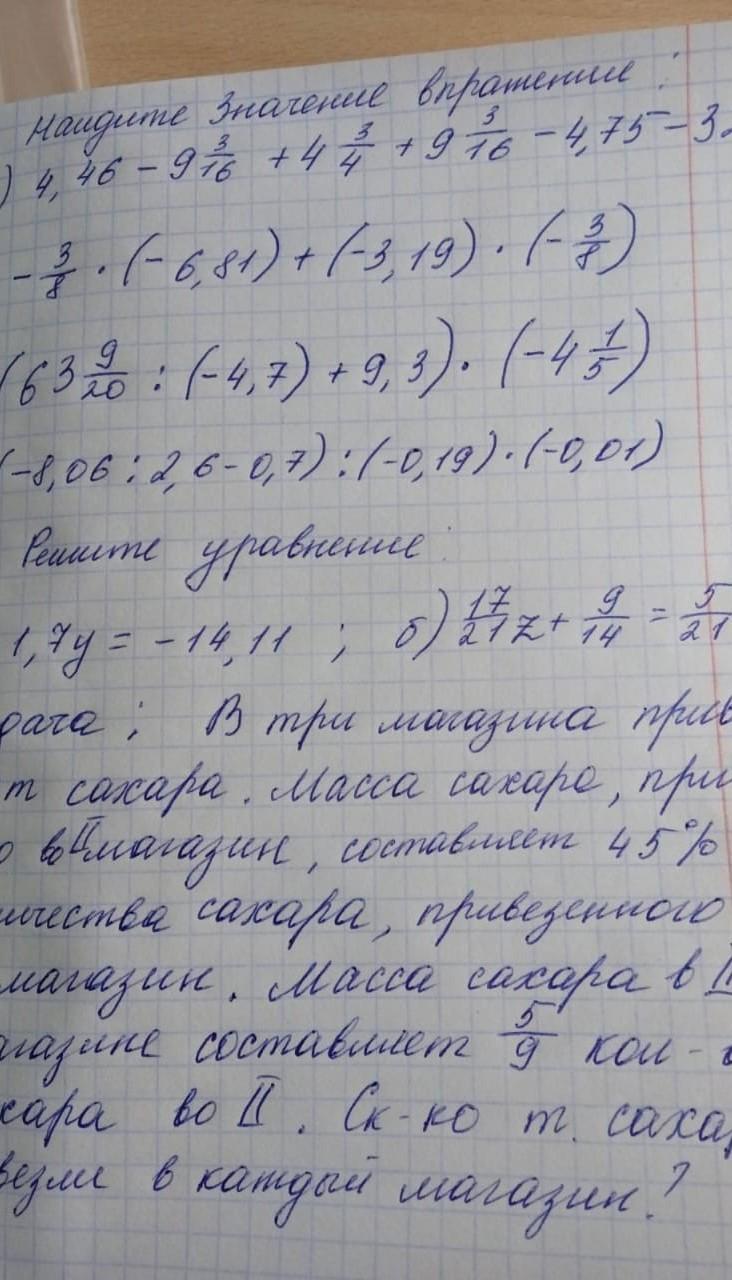 Найдите значение впражение :
) 4,46 - 9 3/16 + 4 3/4 + 9 3/16 - 4,75 - 3
- 3/8 · (- 6,81) + (-3,19) · (- 3/8)
(63 9/20 : (-4,7) + 9,3) · (-4 1/5)
(-8,06 : 2,6 - 0,7) : (-0,19) · (-0,01)
Решите уравнение :
1,7y = - 14,11 ; б) 17/21 z + 9/14 = 5/21
дача ; В три магазина прив
т сахара. Масса сахара, при
о во II магазин, составляет 45%
ичества сахара, привезенного
магазин. Масса сахара в II
агазине составляет 5/9 кол-в
хара во II. Ск-ко т. сахар
везли в каждый магазин?